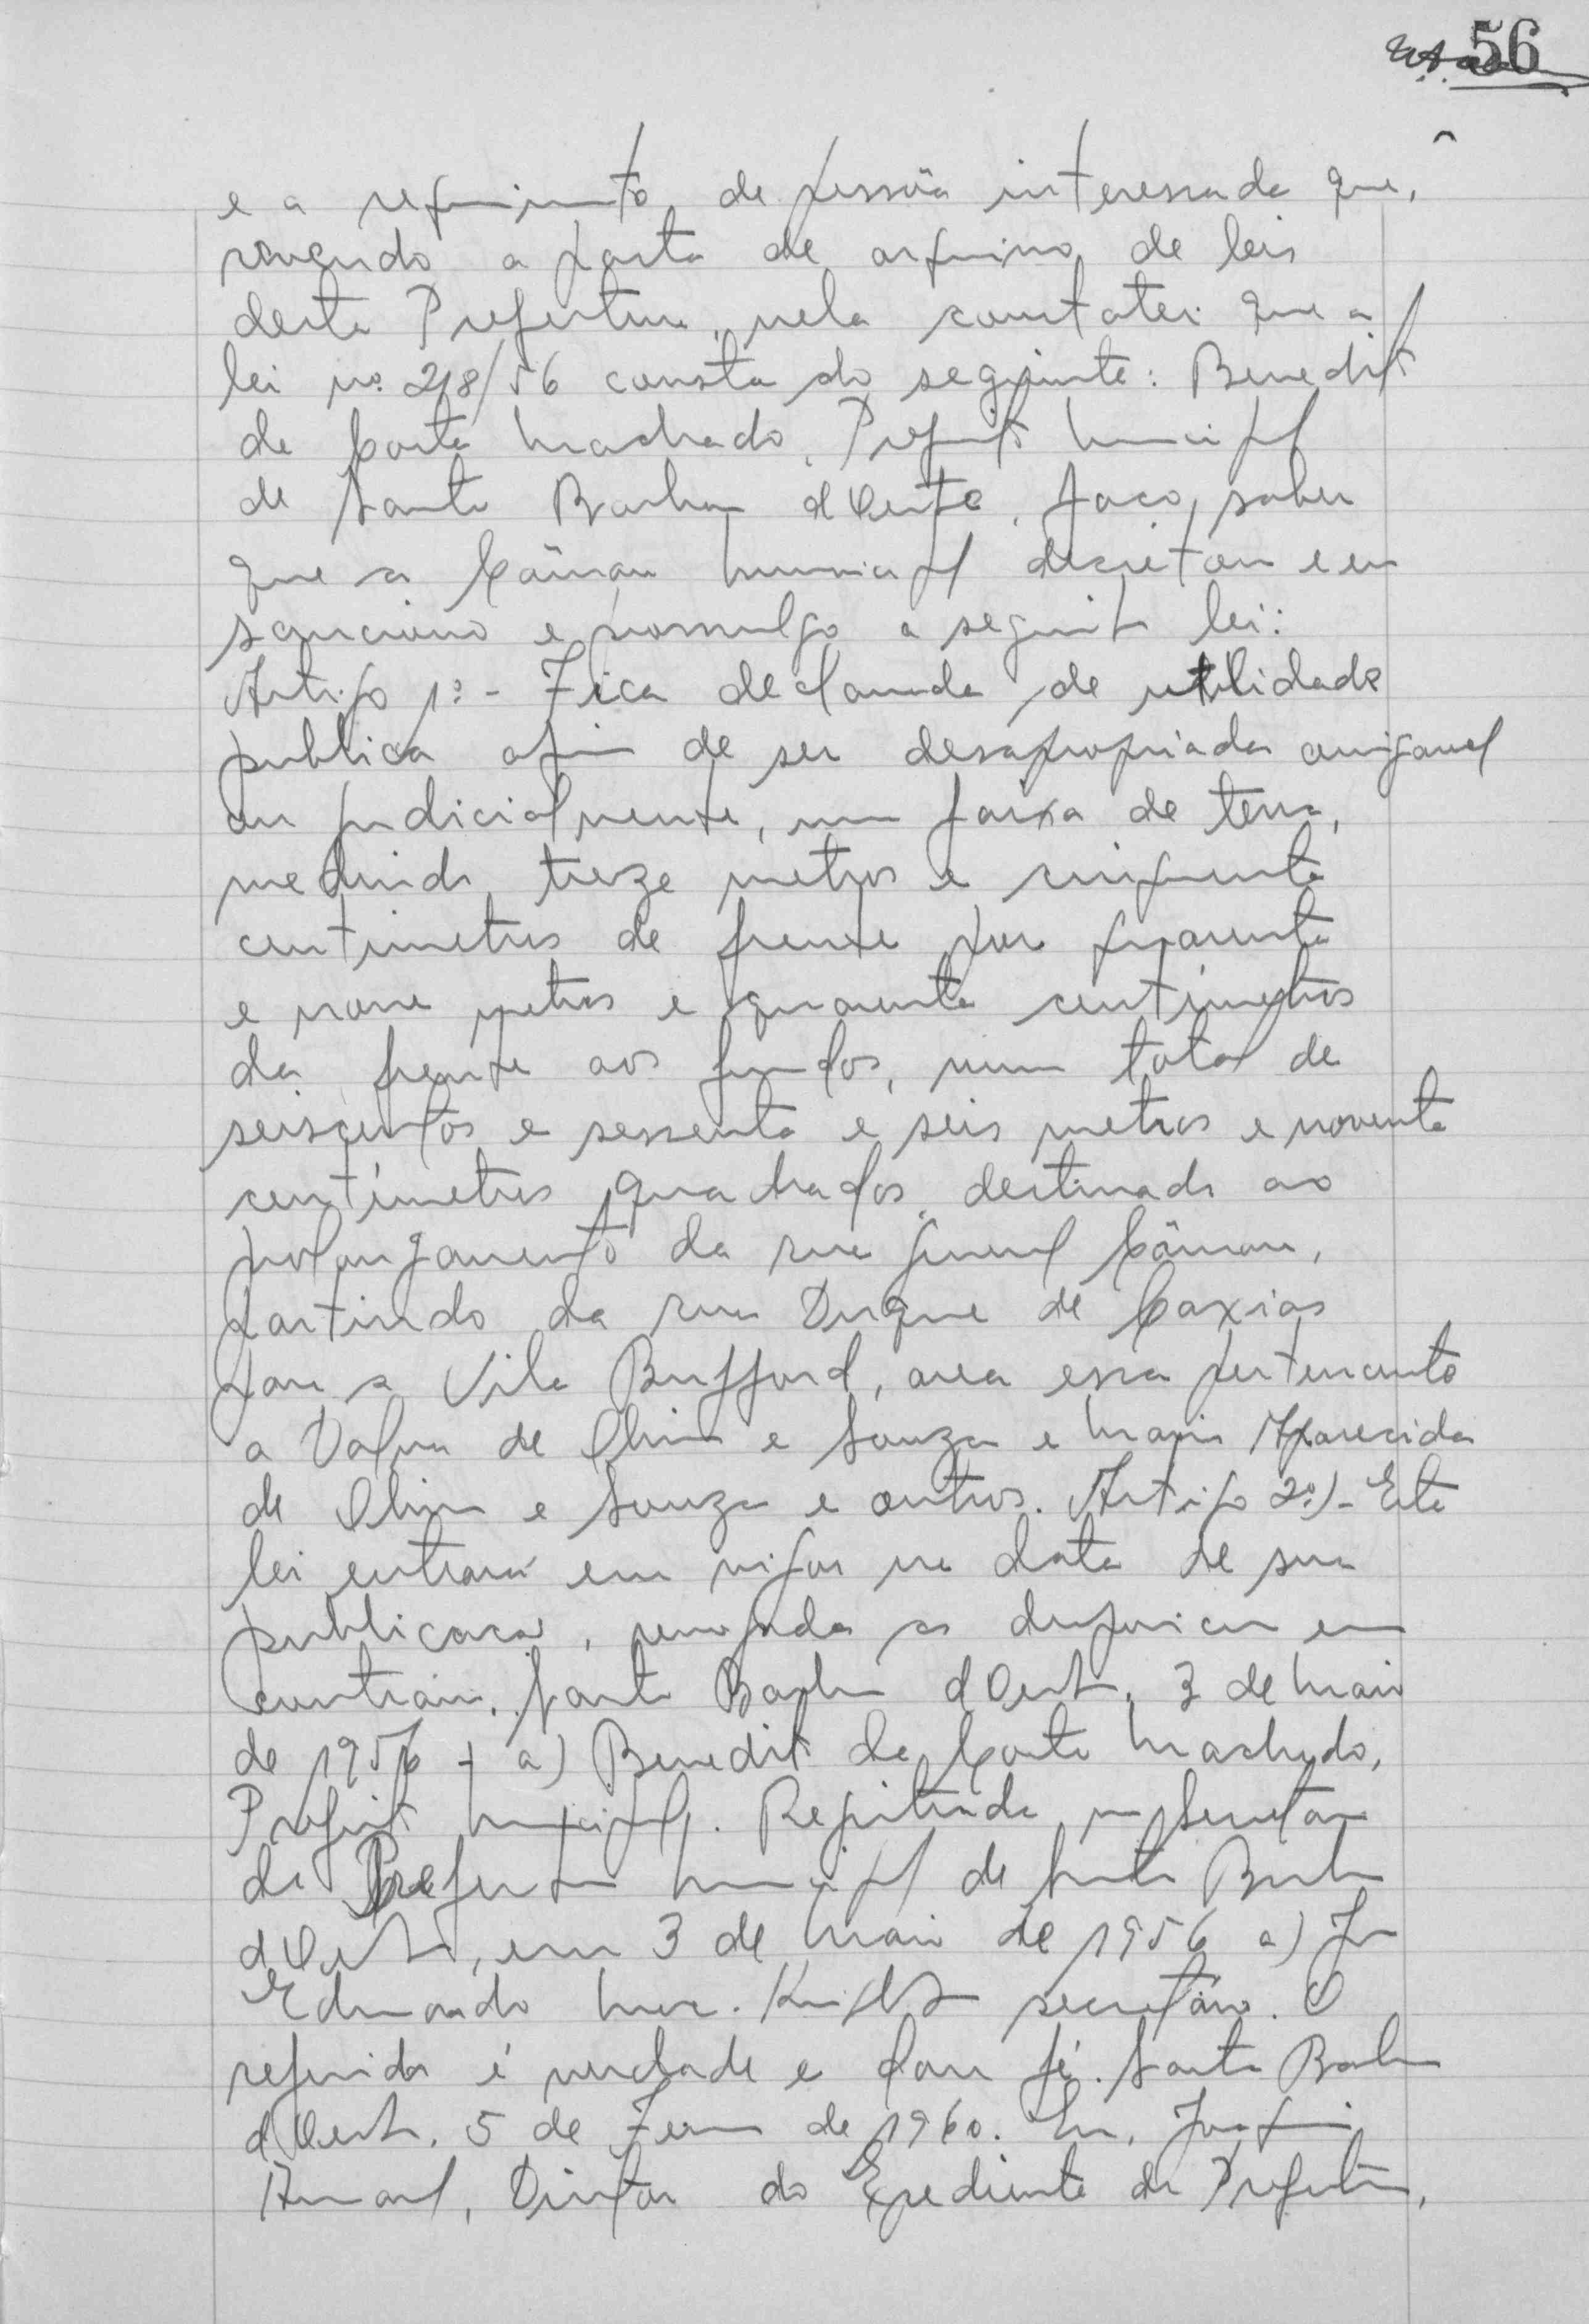 56
e a requerimento de pessôa interessada que,
revendo a pasta de arquivo de leis
desta Prefeitura, nela constatei que a
lei nº 218/56 consta do seguinte: Benedito
da Costa Machado, Prefeito Municipal
de Santa Barbara d'Oeste, faço saber
que a Câmara Municipal decretou e eu
sanciono e promulgo a seguinte lei:
Artigo 1º - Fica declarada de utilidade
publica afim de ser desapropriada amigavel
ou judicialmente, uma faixa de terra,
medindo treze metros e cinquenta
centimetros de frente por quarenta
e nove metros e quarenta centímetros
da frente aos fundos, num total de
seiscentos e sessenta e seis metros e noventa
centímetros quadrados, destinada ao
prolongamento da rua General Câmara,
partindo da rua Duque de Caxias
para a Vila Bufford, area essa pertencente
a de Oliveira e Souza e Maria Aparecida
de Oliveira e Souza e outros. Artigo 2º) - Esta
lei entrará em vigor na data de sua
publicacao, revogadas as disposicoes em
contrário. Santa Barbara d'Oeste, 3 de Maio
de 1956 - a) Benedito da Costa Machado,
Prefeito Municipal. Registrada na Secretaria
da Prefeitura Municipal de Santa Barbara
d'Oeste, em 3 de Maio de 1956 a)
Edmundo secretário. O
referido é verdade e dou fé. Santa Barbara
d'Oeste, 5 de de 1960. Eu,
Amaral, Diretor do Expediente da Prefeitura,